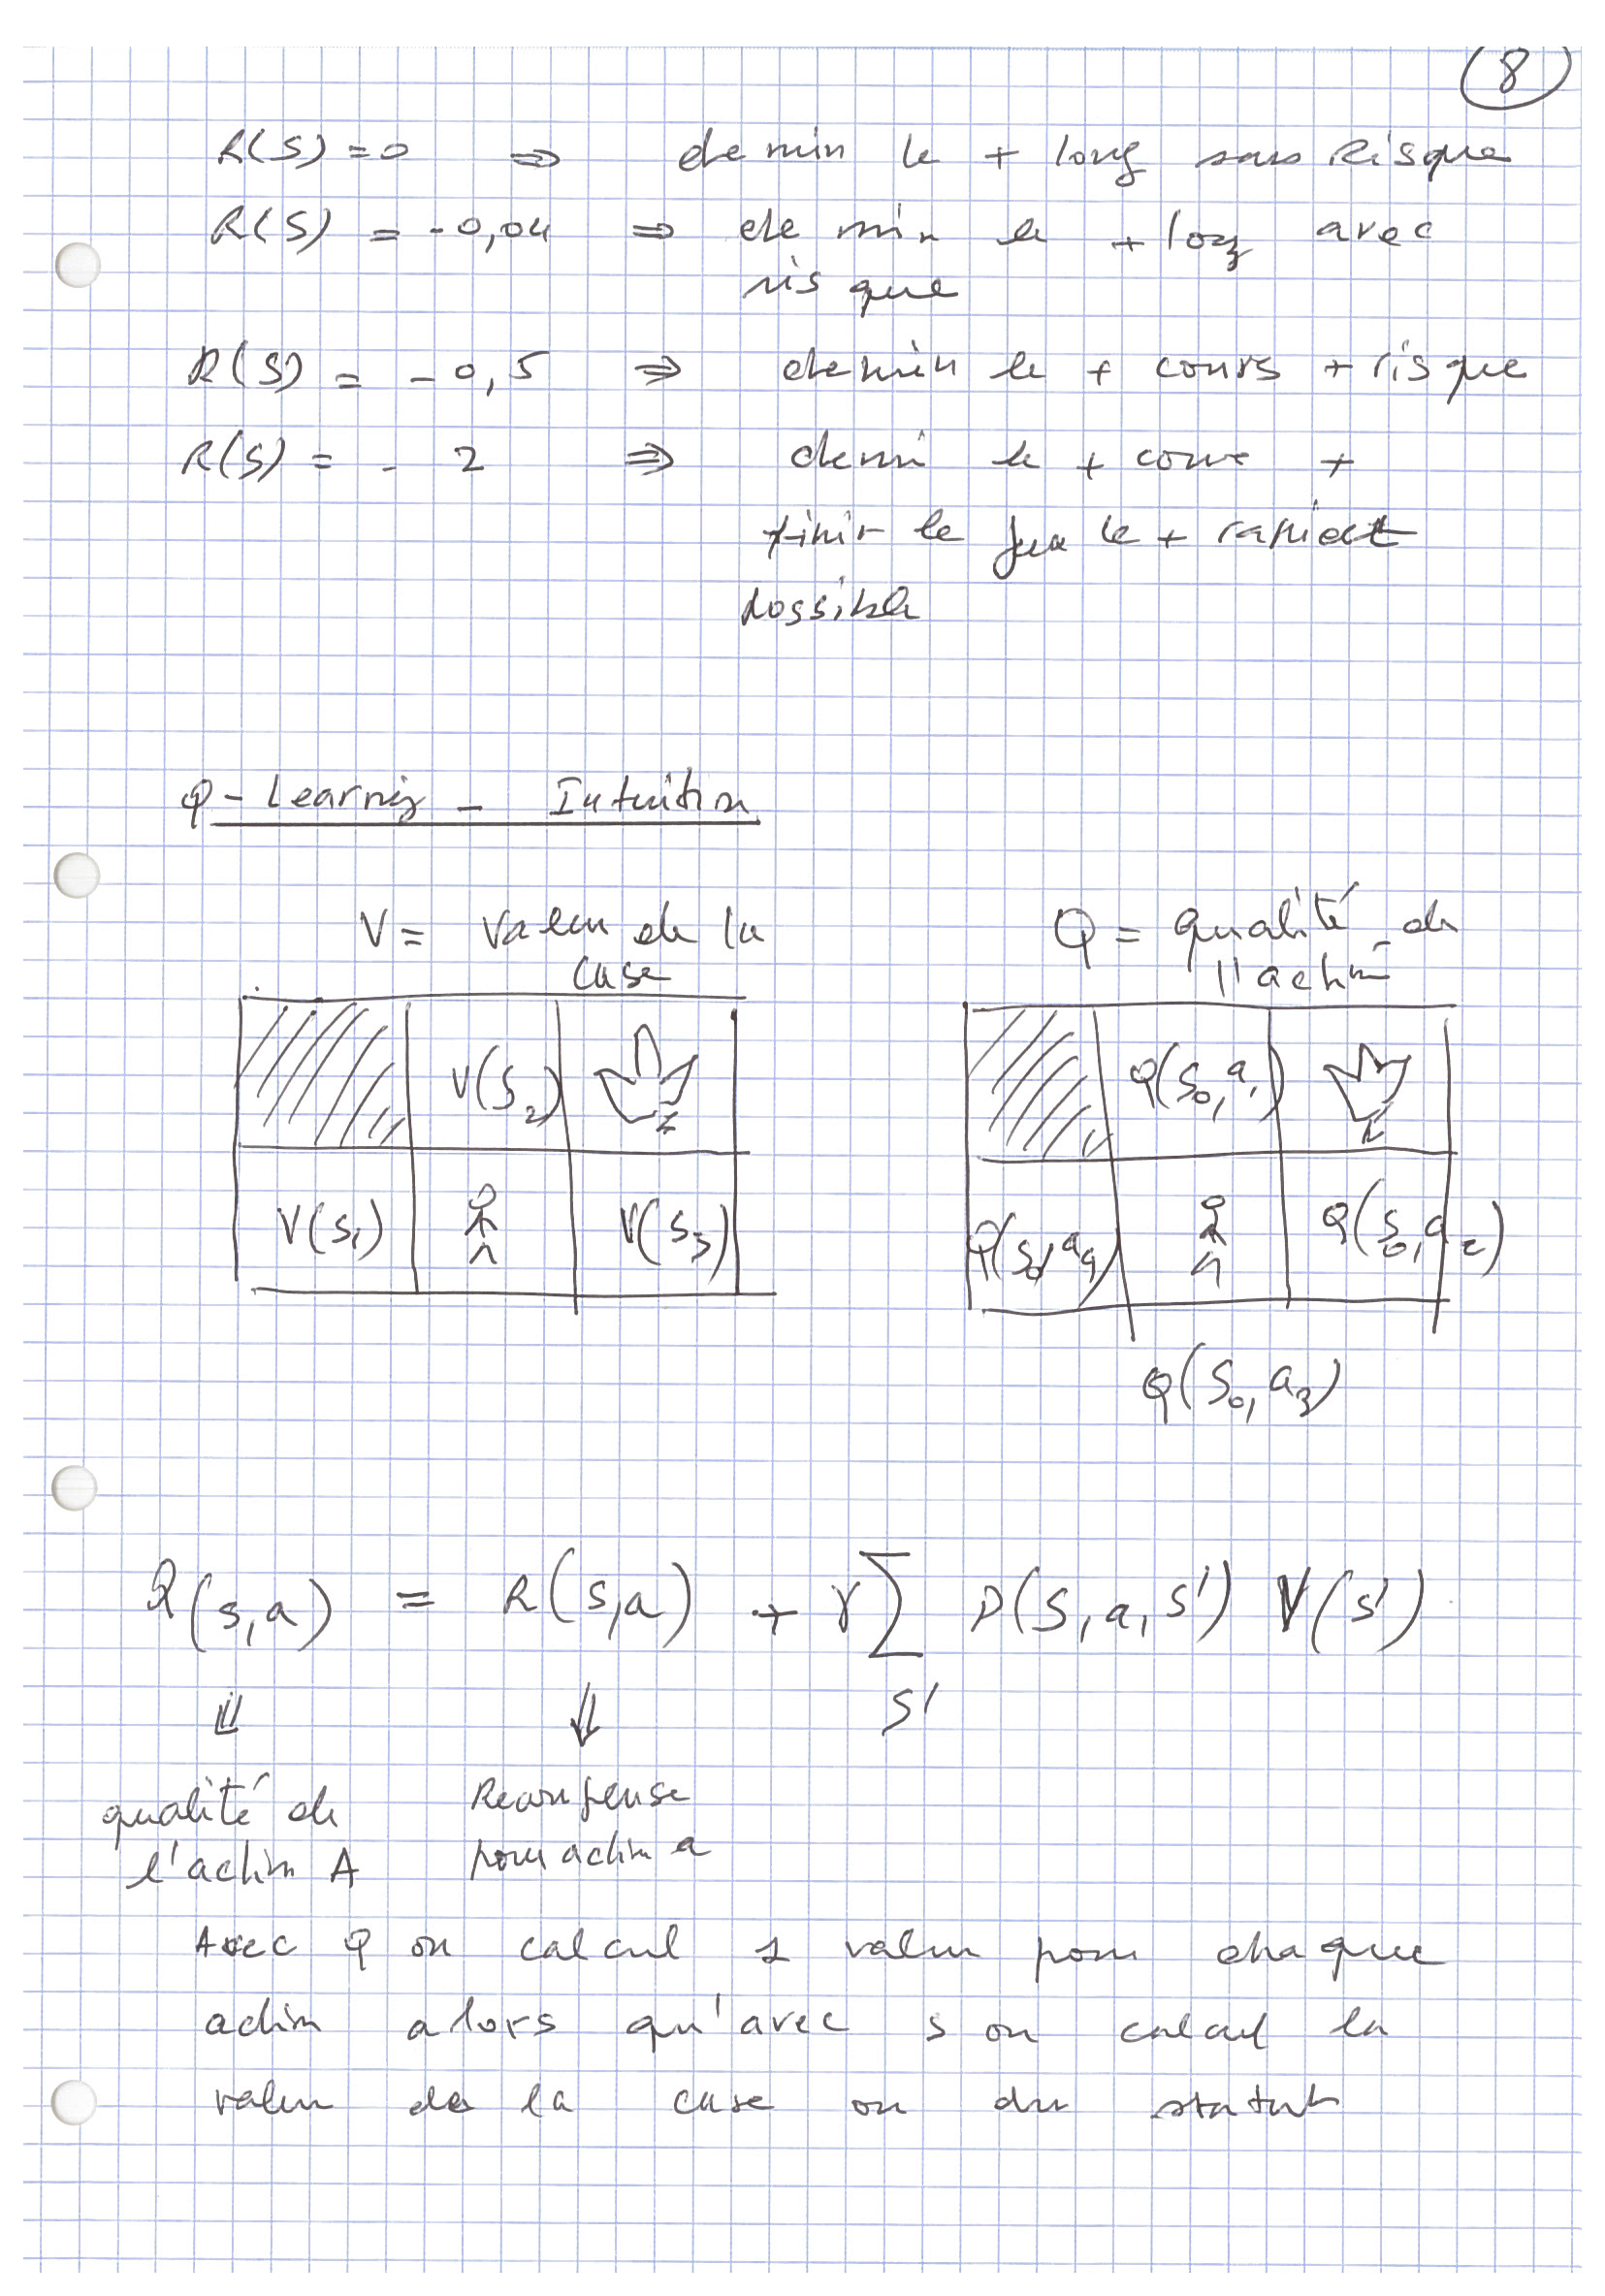 8
R(S) = 0 ⇒ chemin le + long sans Risque
R(S) = -0,04 ⇒ chemin le + long avec
risque
R(S) = -0,5 ⇒ chemin le + cours + risque
R(S) = -2 ⇒ chemin le + cours +
finir le jeux le + rapidt
possible
Q-Learning - Intuition
V = Valeur de la
case
Q = qualité de
l'action
V(S2)
V(S1) V(S3)
Q(S0, a1)
Q(S0, a4) Q(S0, a2)
Q(S0, a3)
Q(s,a) = R(s,a) + γ∑ P(S, a, s') V(s')
s'
⇓ ⇓
qualité de
l'action A
Recompense
pour action a
Avec Q on calcul 1 valeur pour chaque
action alors qu'avec s on calcul la
valeur de la case ou du statut